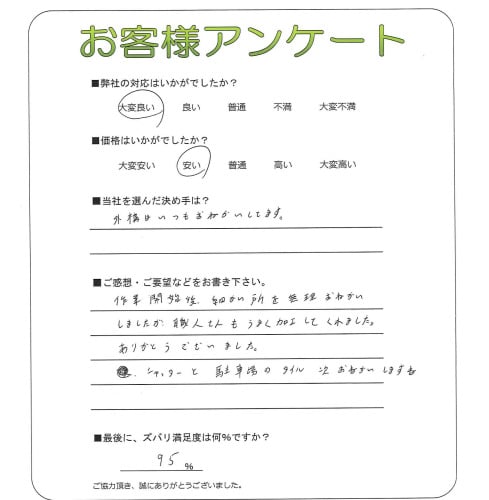 お客様アンケート
■弊社の対応はいかがでしたか？
大変良い 良い 普通 不満 大変不満
■価格はいかがでしたか？
大変安い 安い 普通 高い 大変高い
■当社を選んだ決め手は？
外構はいつもおねがいしてます。
■ご感想・ご要望などをお書き下さい。
作業開始後、細かい所を無理おねがい
しましたが職人さんもうまく加工してくれました。
ありがとうございました。
シャッターと駐車場のタイル次おねがいします
■最後に、ズバリ満足度は何%ですか？
95 %
ご協力頂き、誠にありがとうございました。